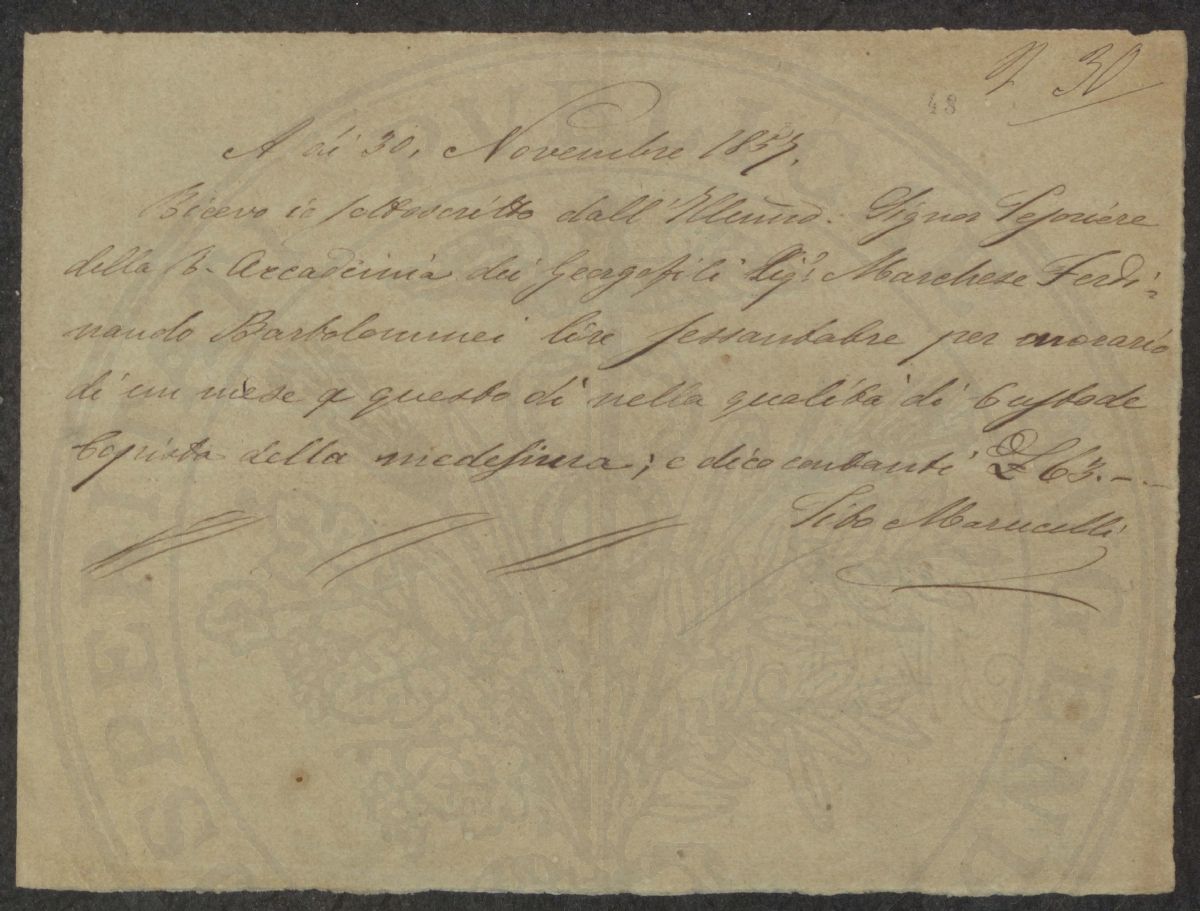 N. 30
48
A dì 30, Novembre 1857.
Ricevo io sottoscritto dall' Illumo. Signor Tesoriere
della R. Accademia dei Georgofili Sigr. Marchese Ferdi-
nando Bartolommei lire sessantatre per onorario
di un mese a questo dì nella qualità di Custode
Copista della medesima; e dico contanti £ 63.--
Tito Marucelli